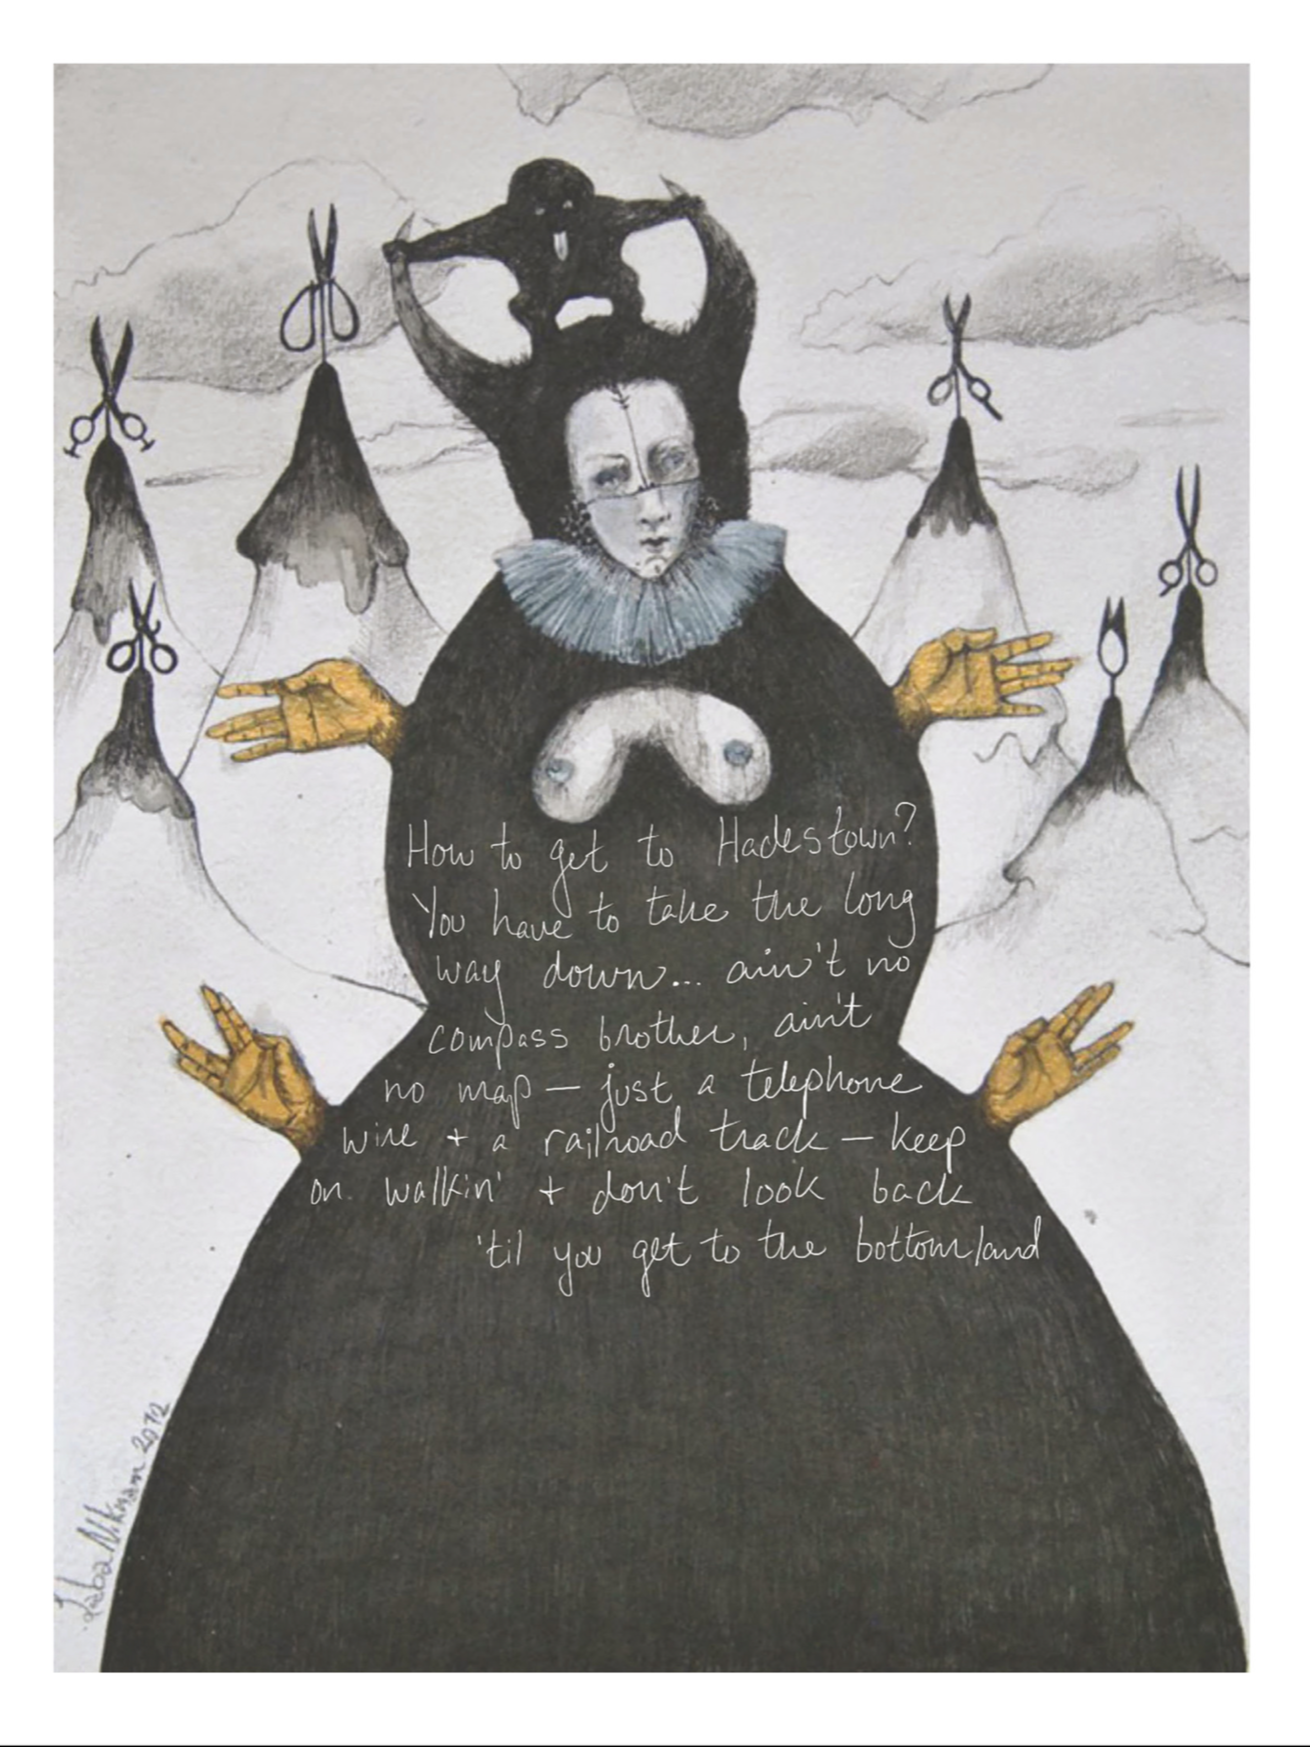 How to get to Hadestown?
You have to take the long
way down... ain't no
compass brother, ain't
no map — just a telephone
wire + a railroad track — keep
on walkin' + don't look back
'til you get to the bottomland
Leeba Niknam 2012